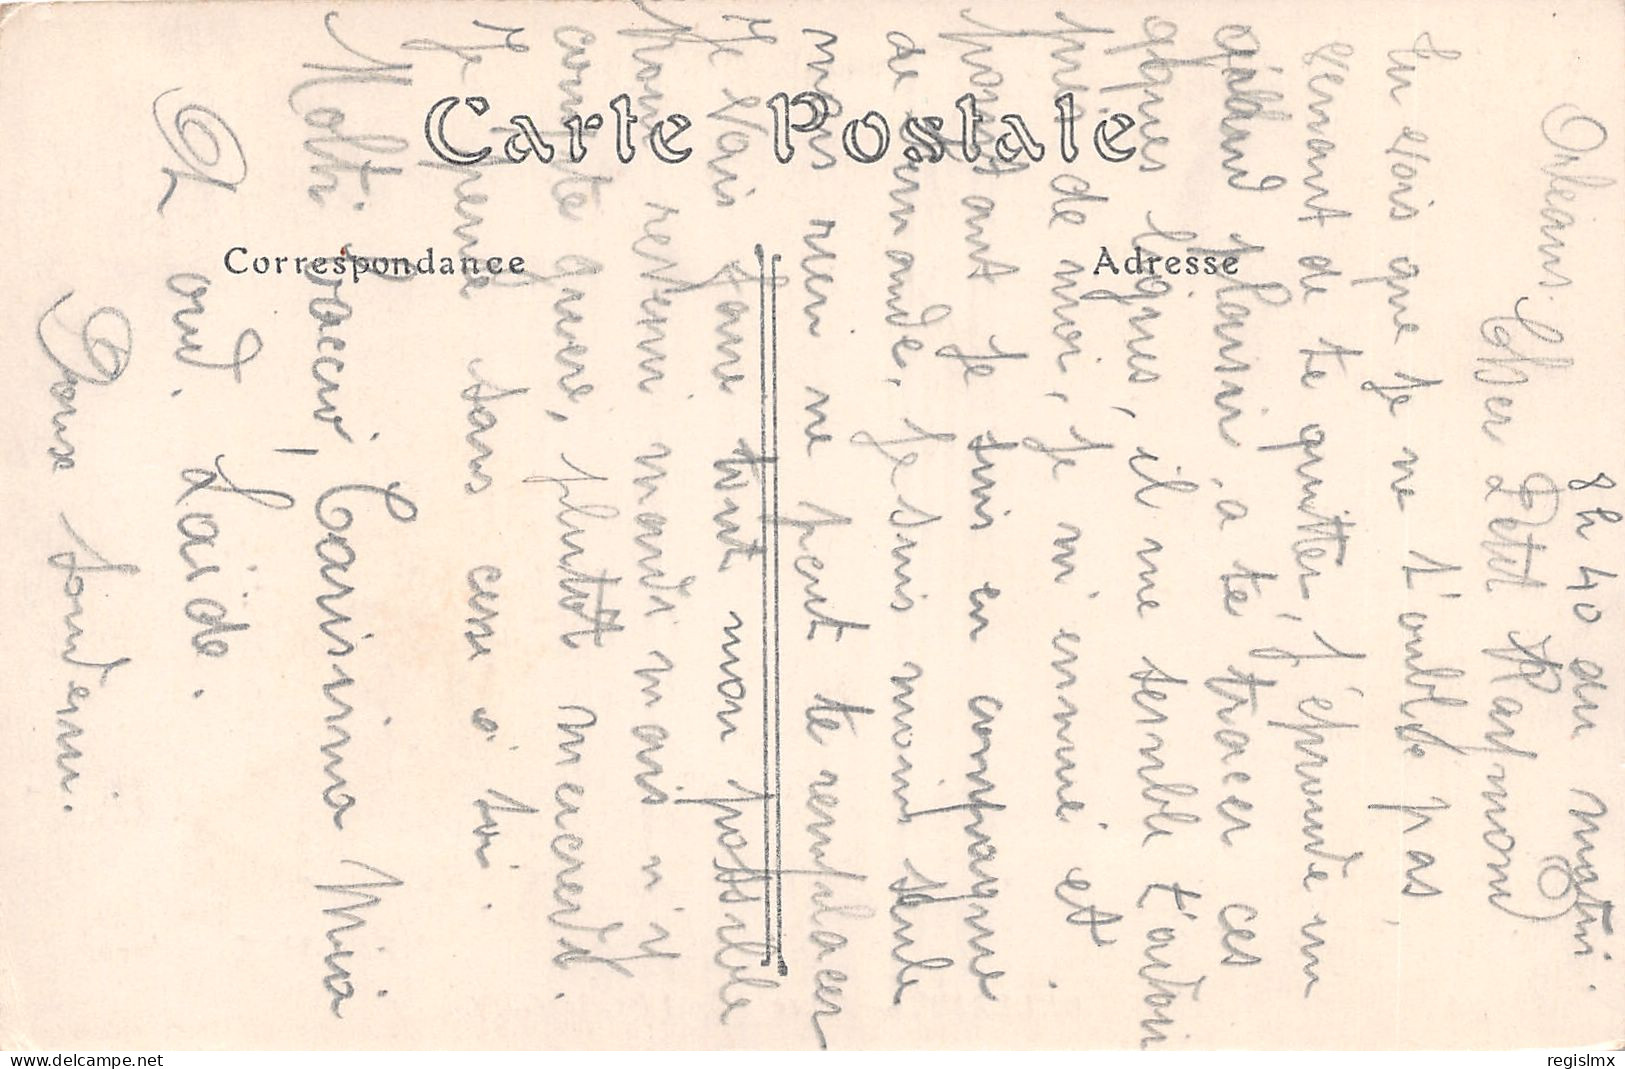 Carte Postale
Correspondance
Adresse
Orléans. 8 h 40 du matin.
Cher Petit Raymond
Tu vois que je ne t'oublie pas,
venant de te quitter, j'éprouve un
grand plaisir, a te tracer ces
qques lignes, il me semble t'avoir
près de moi, je m'ennui et
pourtant je suis en compagnie
de Normande, je suis moins seule
mais rien ne peut te remplacer
Je vais faire tout mon possible
pour revenir mardi mais n'y
compte guère, plutôt mercredi.
Je pense sans cesse à toi.
Molti bacci, Carissima Mia
Loulaide.
Doux souvenir.
regislmx